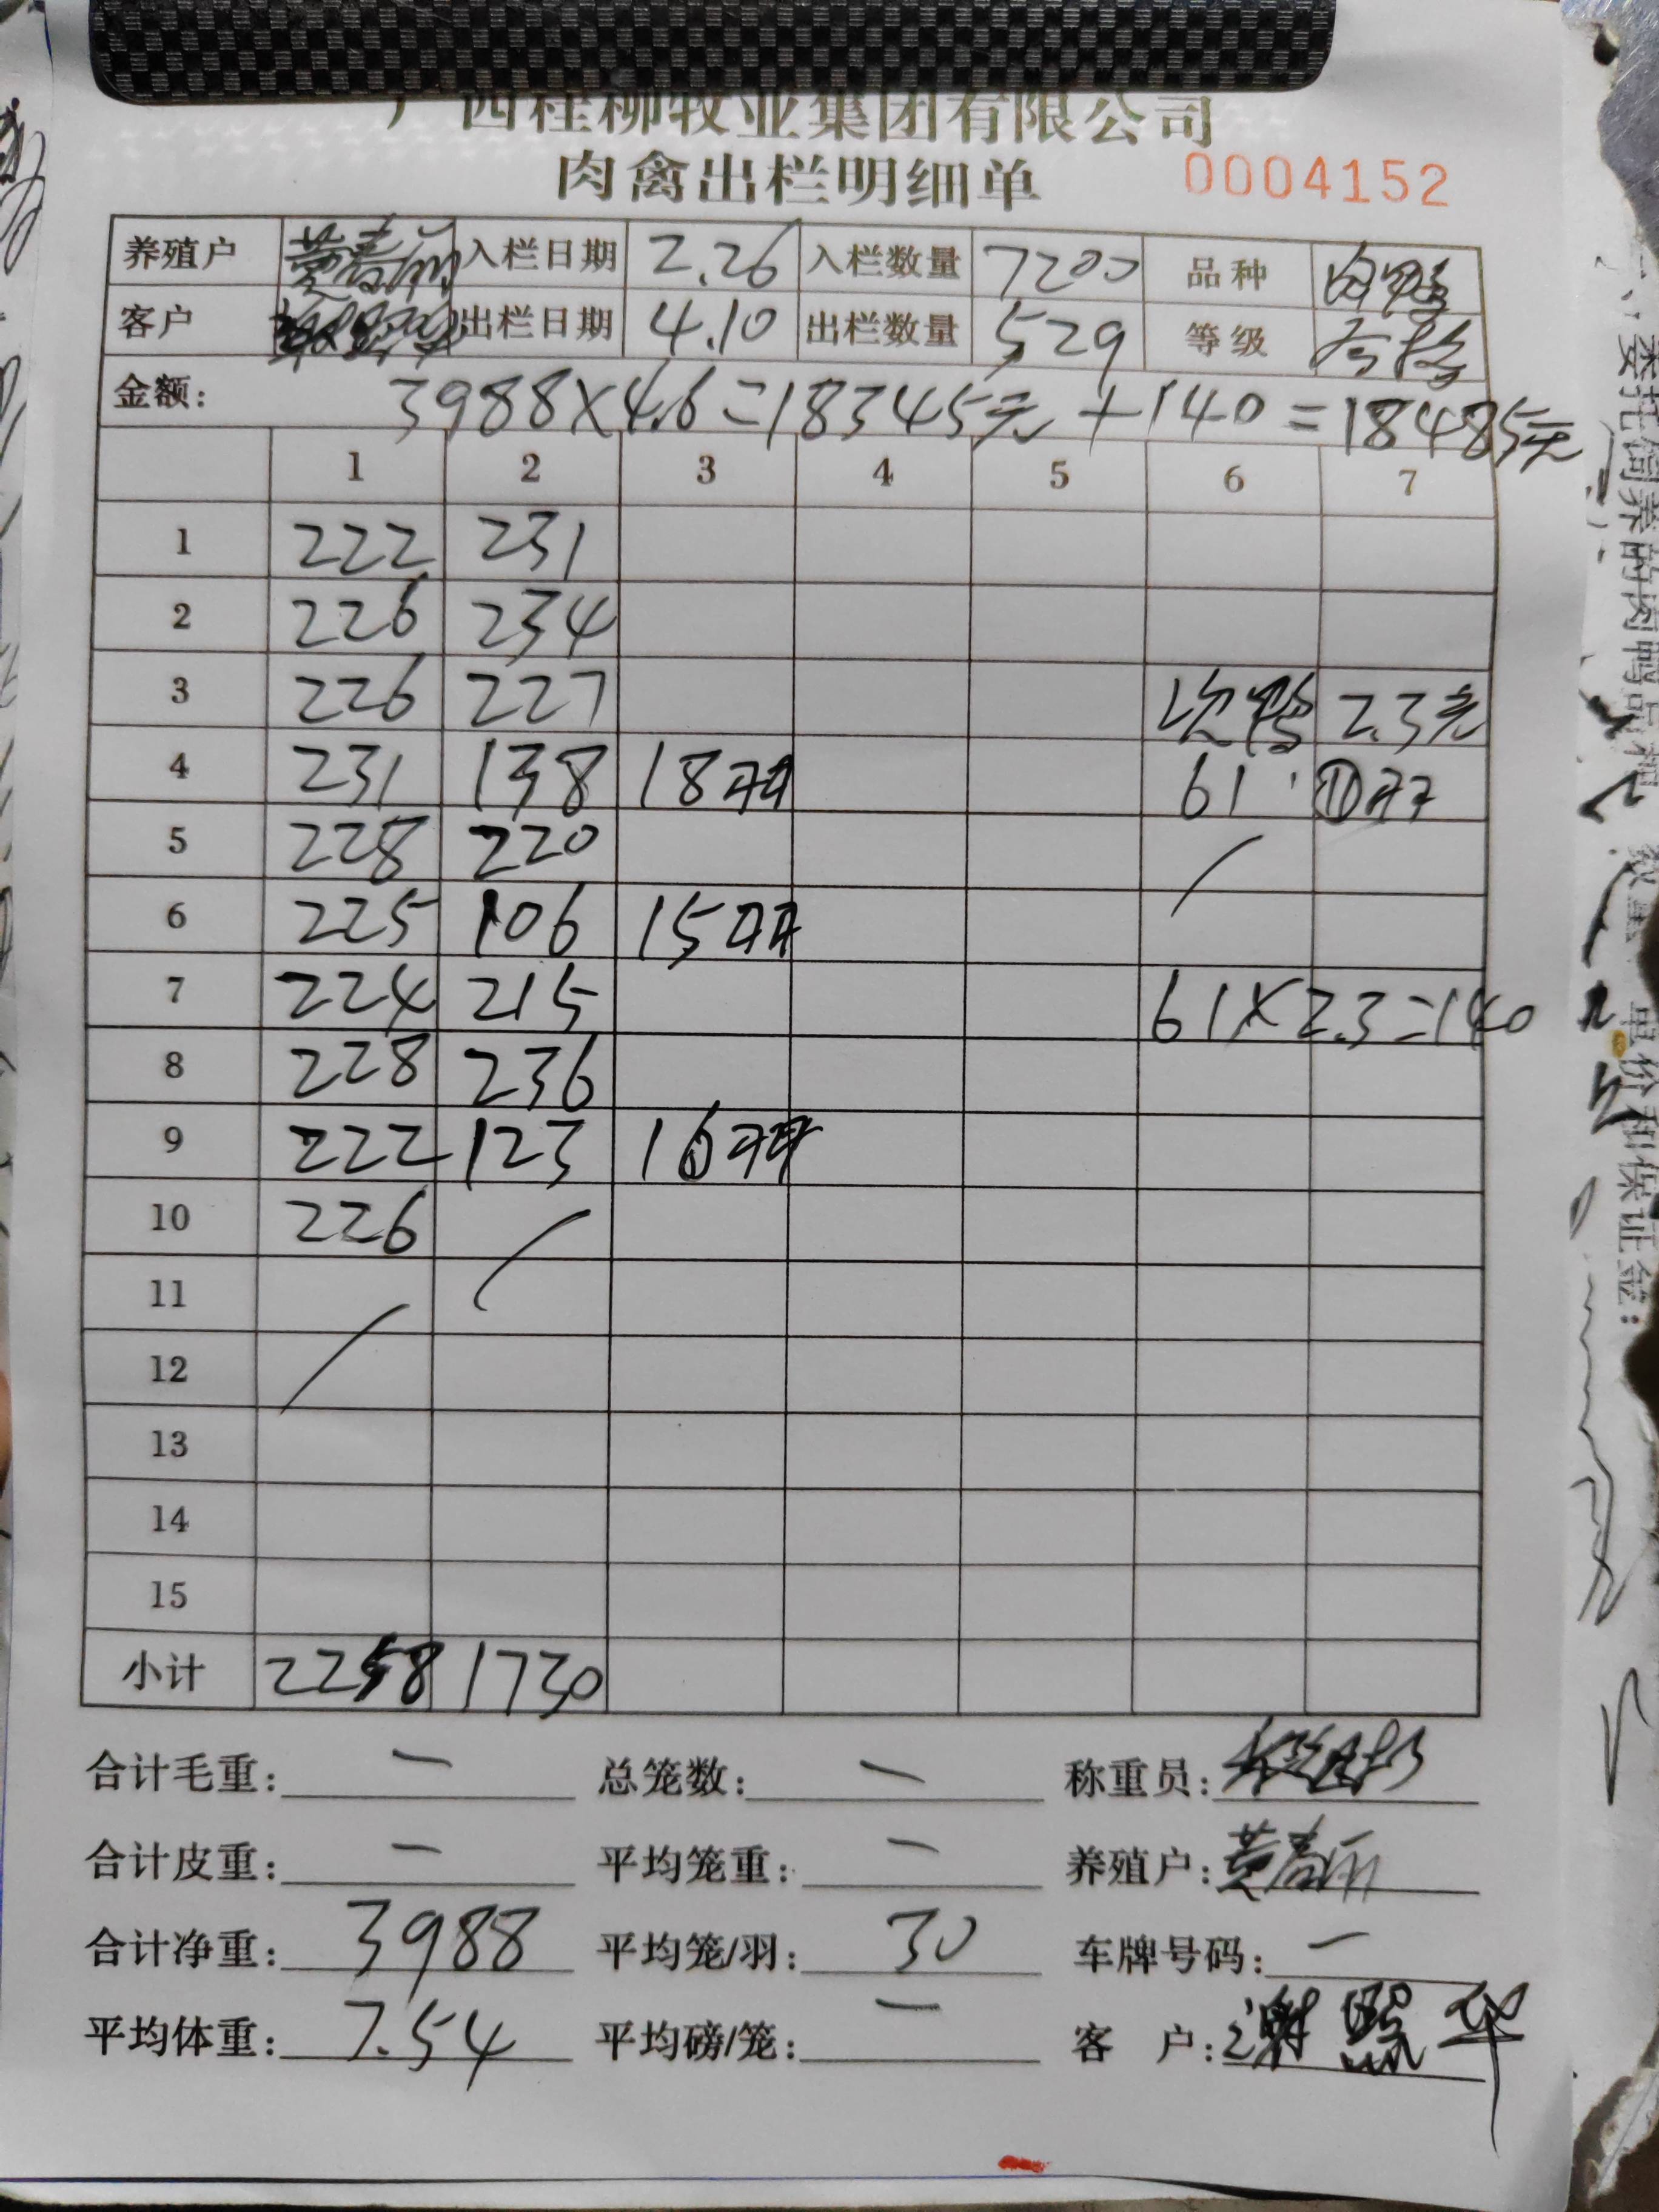 广西桂柳牧业集团有限公司
肉禽出栏明细单 0004152
养殖户 黄春丽 入栏日期 2.26 入栏数量 7200 品种 肉鸭
客户 出栏日期 4.10 出栏数量 529 等级 合格
金额: 3988×4.6=18345元+140=18485元
1 2 3 4 5 6 7
1 222 231
2 226 234
3 226 227 次鸭 2.3元
4 231 138 18羽 61 ⑪羽
5 228 220
6 225 106 15羽
7 224 215 61×2.3=140
8 228 236
9 222 123 16羽
10 226
11
12
13
14
15
小计 2258 1730
合计毛重: — 总笼数: — 称重员:
合计皮重: — 平均笼重: — 养殖户: 黄春丽
合计净重: 3988 平均笼/羽: 30 车牌号码: —
平均体重: 7.54 平均磅/笼: — 客户: 谢照华
委托饲养的肉鸭品种
单价和保证金: